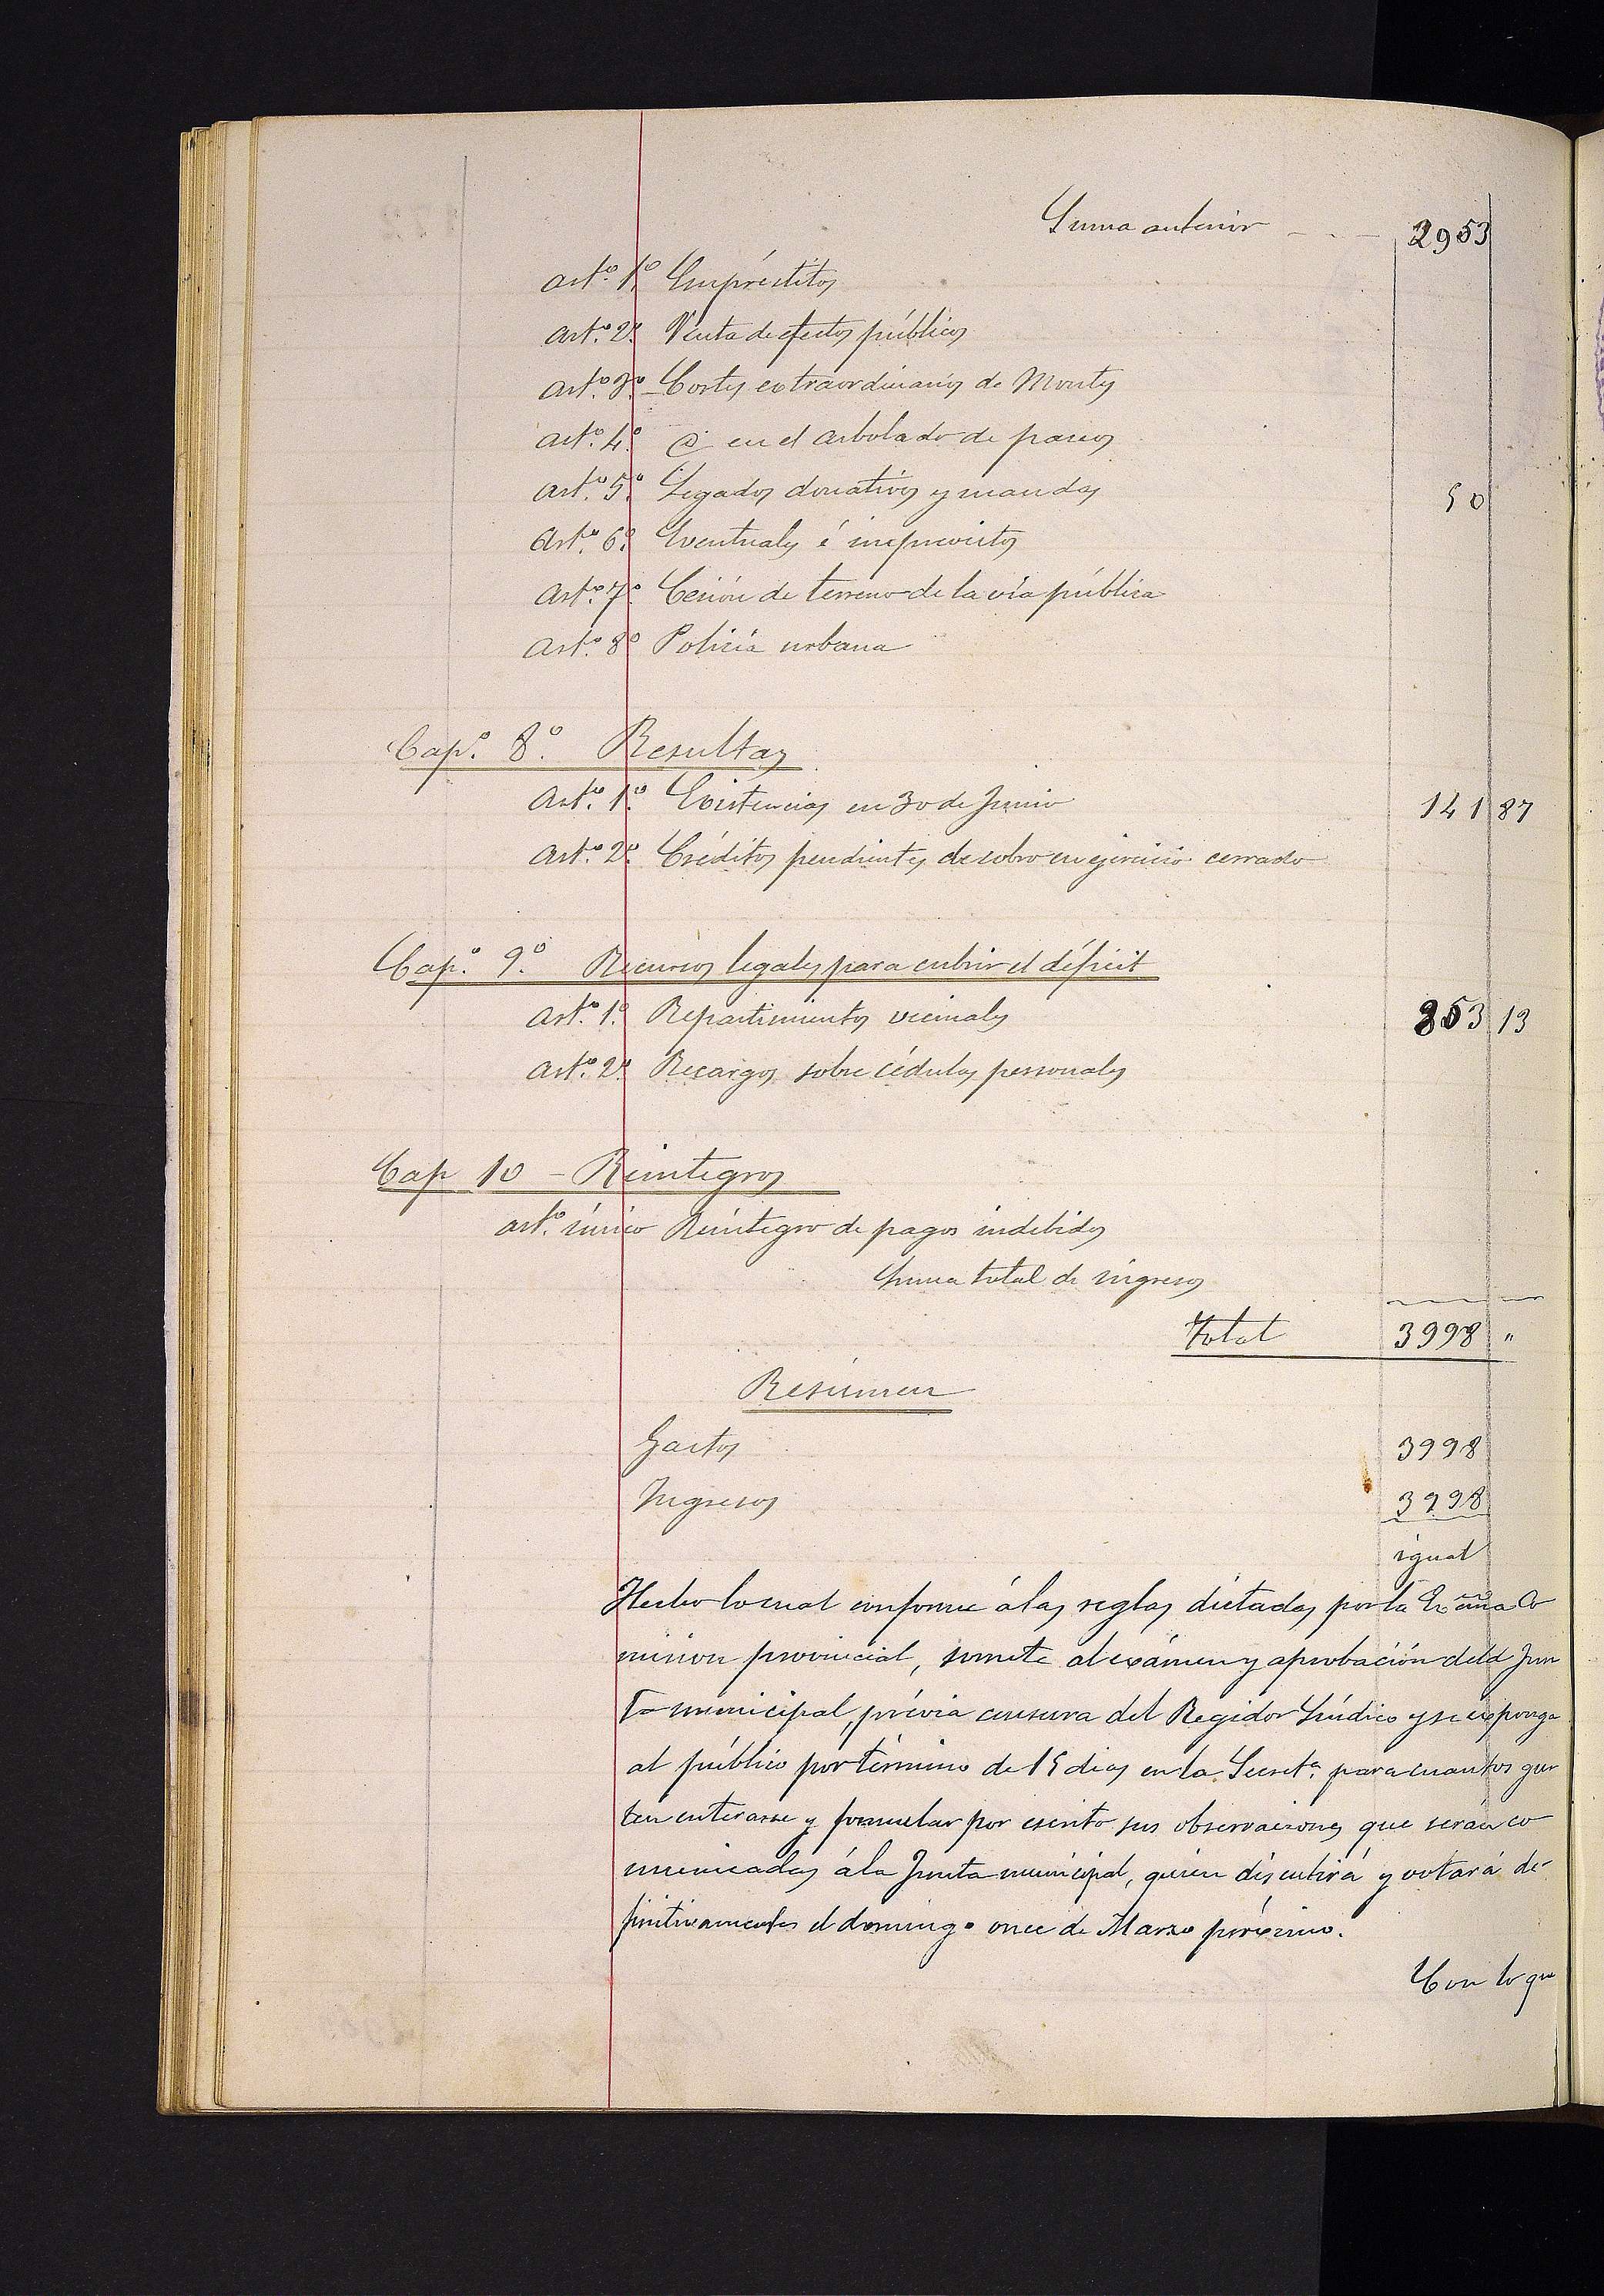 Suma anterior - - - 2953
artº 1º Empréstitos
artº 2º Venta de efectos públicos
artº 3º Cortes extraordinarios de Montes
artº 4º @ en el arbolado de paseos
artº 5º Legados donativos y mandas 50
artº 6º Eventuales é imprevistos
artº 7º Cesión de terreno de la vía pública
artº 8º Policía urbana
Capº 8º Resultas
Artº 1º Existencias en 30 de Junio 141 87
artº 2º Créditos pendientes de cobro en ejercicio cerrado
Capº 9º Recursos legales para cubrir el déficit
artº 1º Repartimientos vecinales 853 13
artº 2º Recargos sobre cédulas personales
Cap 10 - Reintegros
artº único Reintegro de pagos indebidos
Suma total de ingresos
Total 3998 "
Resúmen
Gastos 3998
Ingresos 3998
igual
Hecho lo cual conforme á las reglas dictadas por la Excma Co
mision provincial, somete al exámen y aprobación de la Jun
ta municipal, prévia censura del Regidor Síndico y se exponga
al público por término de 15 dias en la Secretª para cuantos gus
ten enterarse y formular por escrito sus observaciones que serán co
municadas á la Junta municipal, quien discutirá y votará de-
finitivamente el domingo once de Marzo próximo.
Con lo que